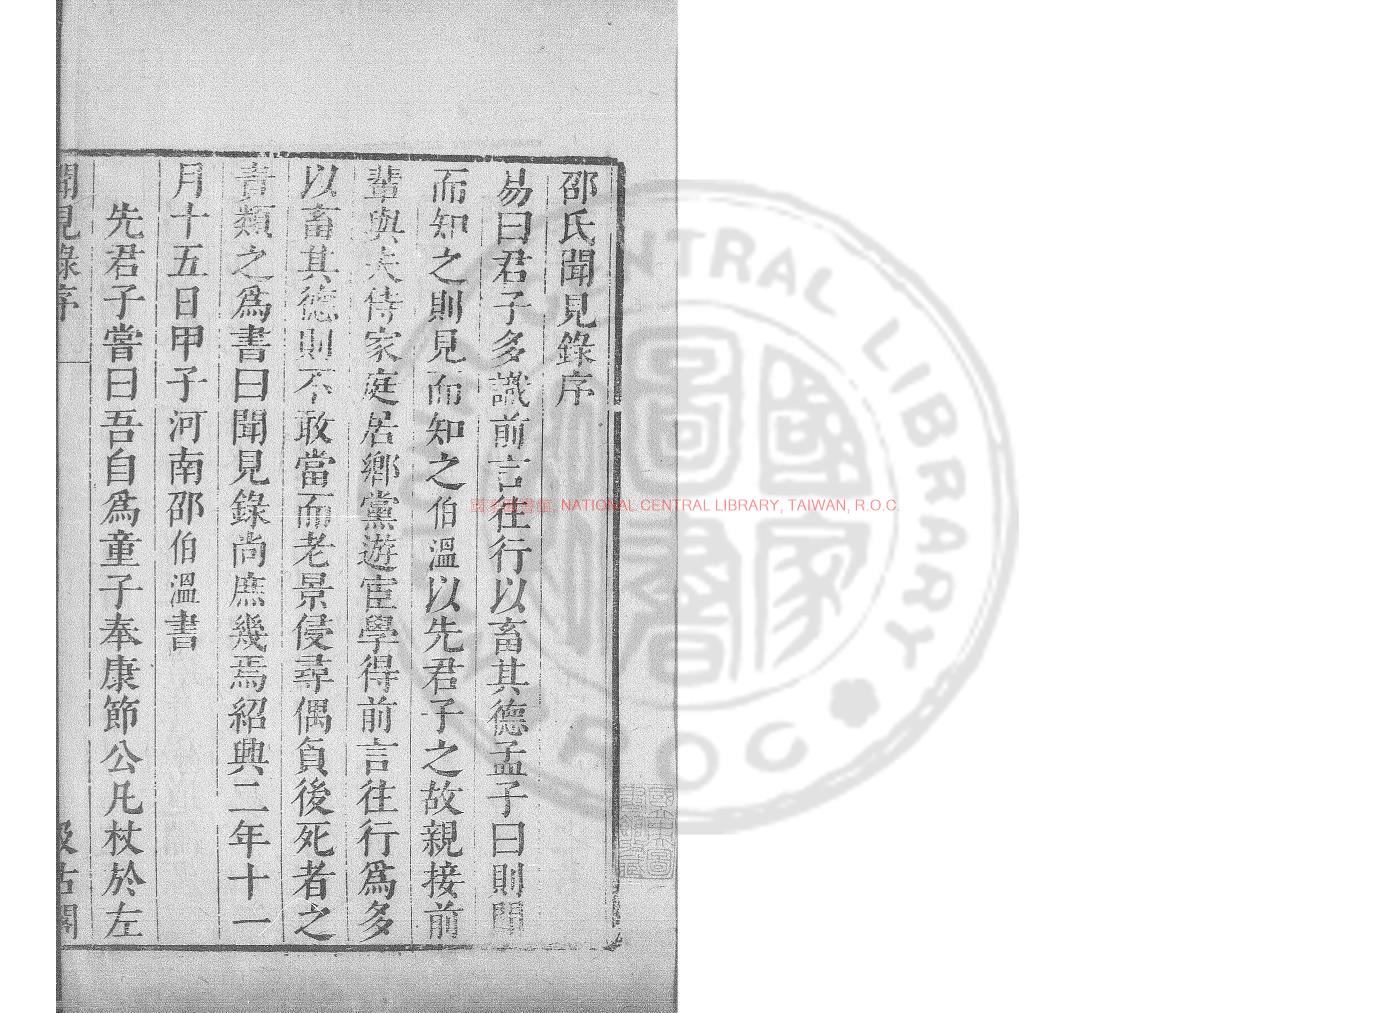 邵氏聞見錄序
易曰君子多識前言往行以畜其德孟子曰則聞
而知之則見而知之伯溫以先君子之故親接前
輩與夫侍家庭居鄉黨遊宦學得前言往行爲多
以畜其德則不敢當而老景侵尋偶負後死者之
責類之爲書曰聞見錄尚庶幾焉紹興二年十一
月十五日甲子河南邵伯溫書
先君子嘗曰吾自爲童子奉康節公凡杖於左
聞見錄序
一
汲古閣
國家圖書館, NATIONAL CENTRAL LIBRARY, TAIWAN, R.O.C.
CENTRAL LIBRARY
R.O.C
國家圖書